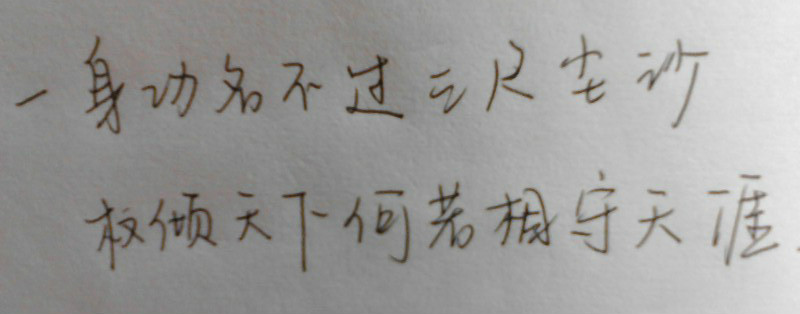 一身功名不过三尺尘沙
权倾天下何若相守天涯